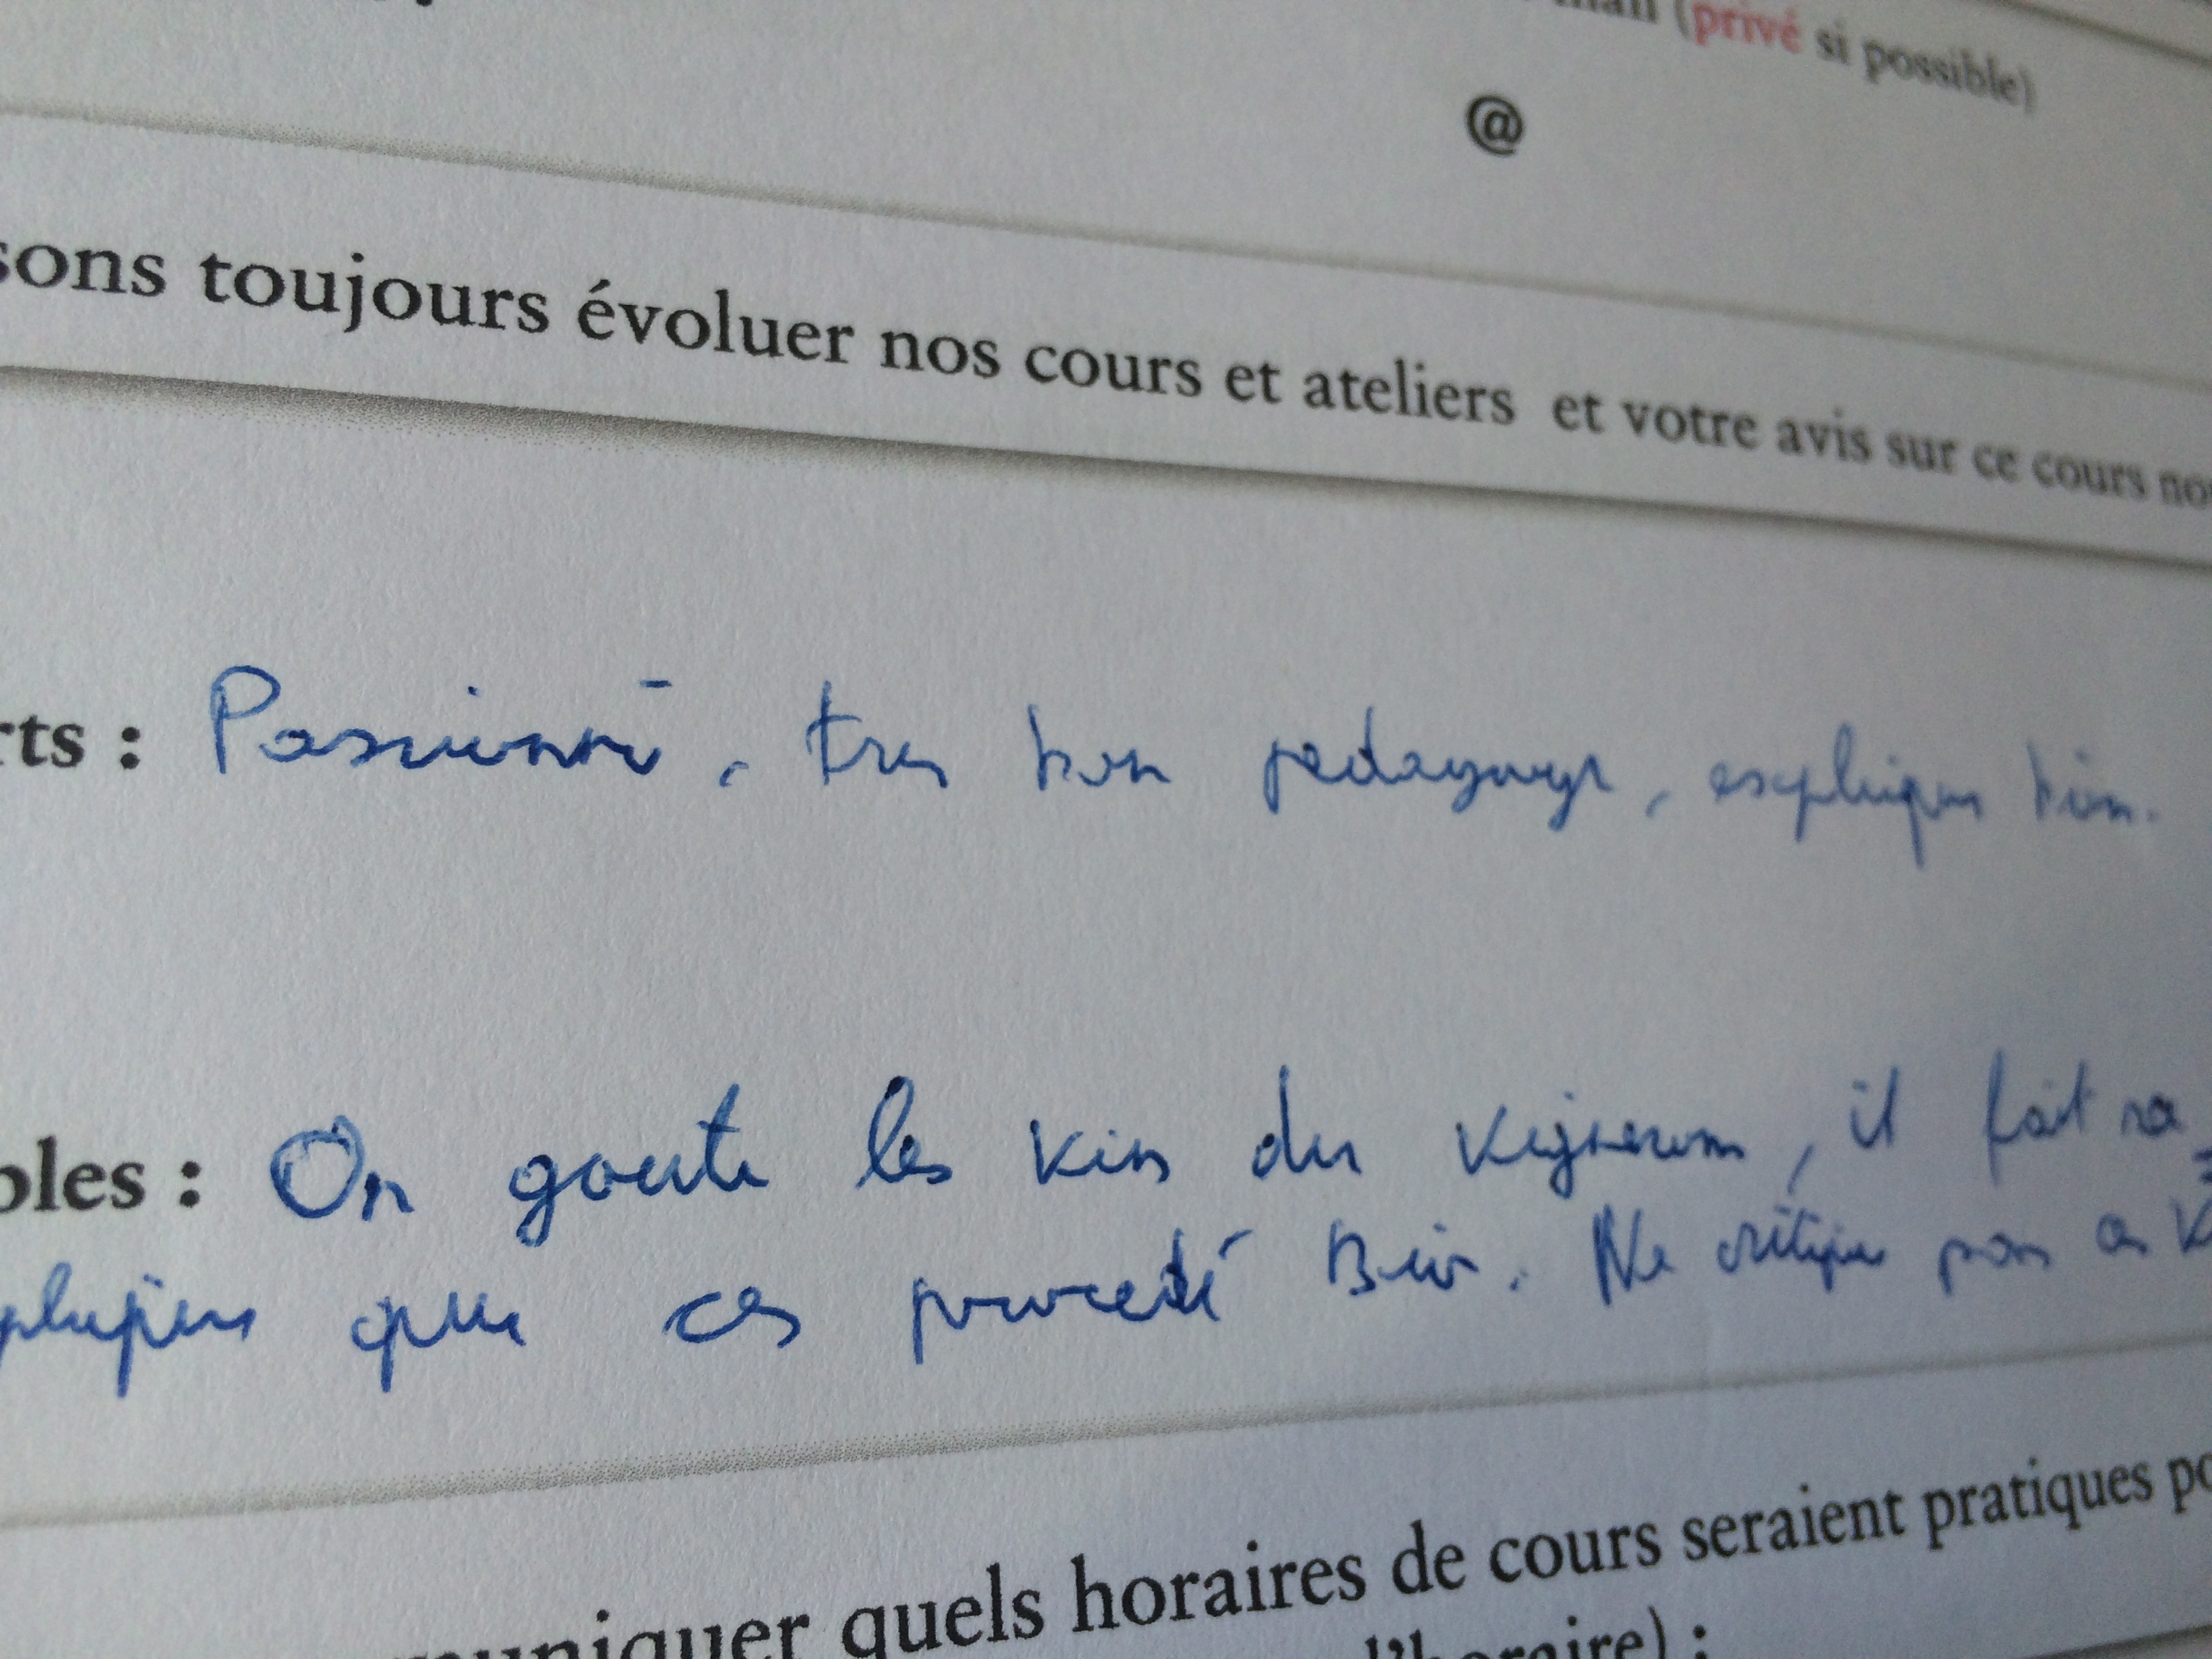 (privé si possible)
@
sons toujours évoluer nos cours et ateliers et votre avis sur ce cours no
rts : Passionné, tres bon pedagogue, explique bien.
bles : On goute les vins du vigneron, il fait sa
que ces procedé Bio. Ne critique pas
muniquer quels horaires de cours seraient pratiques po
l'horaire) :